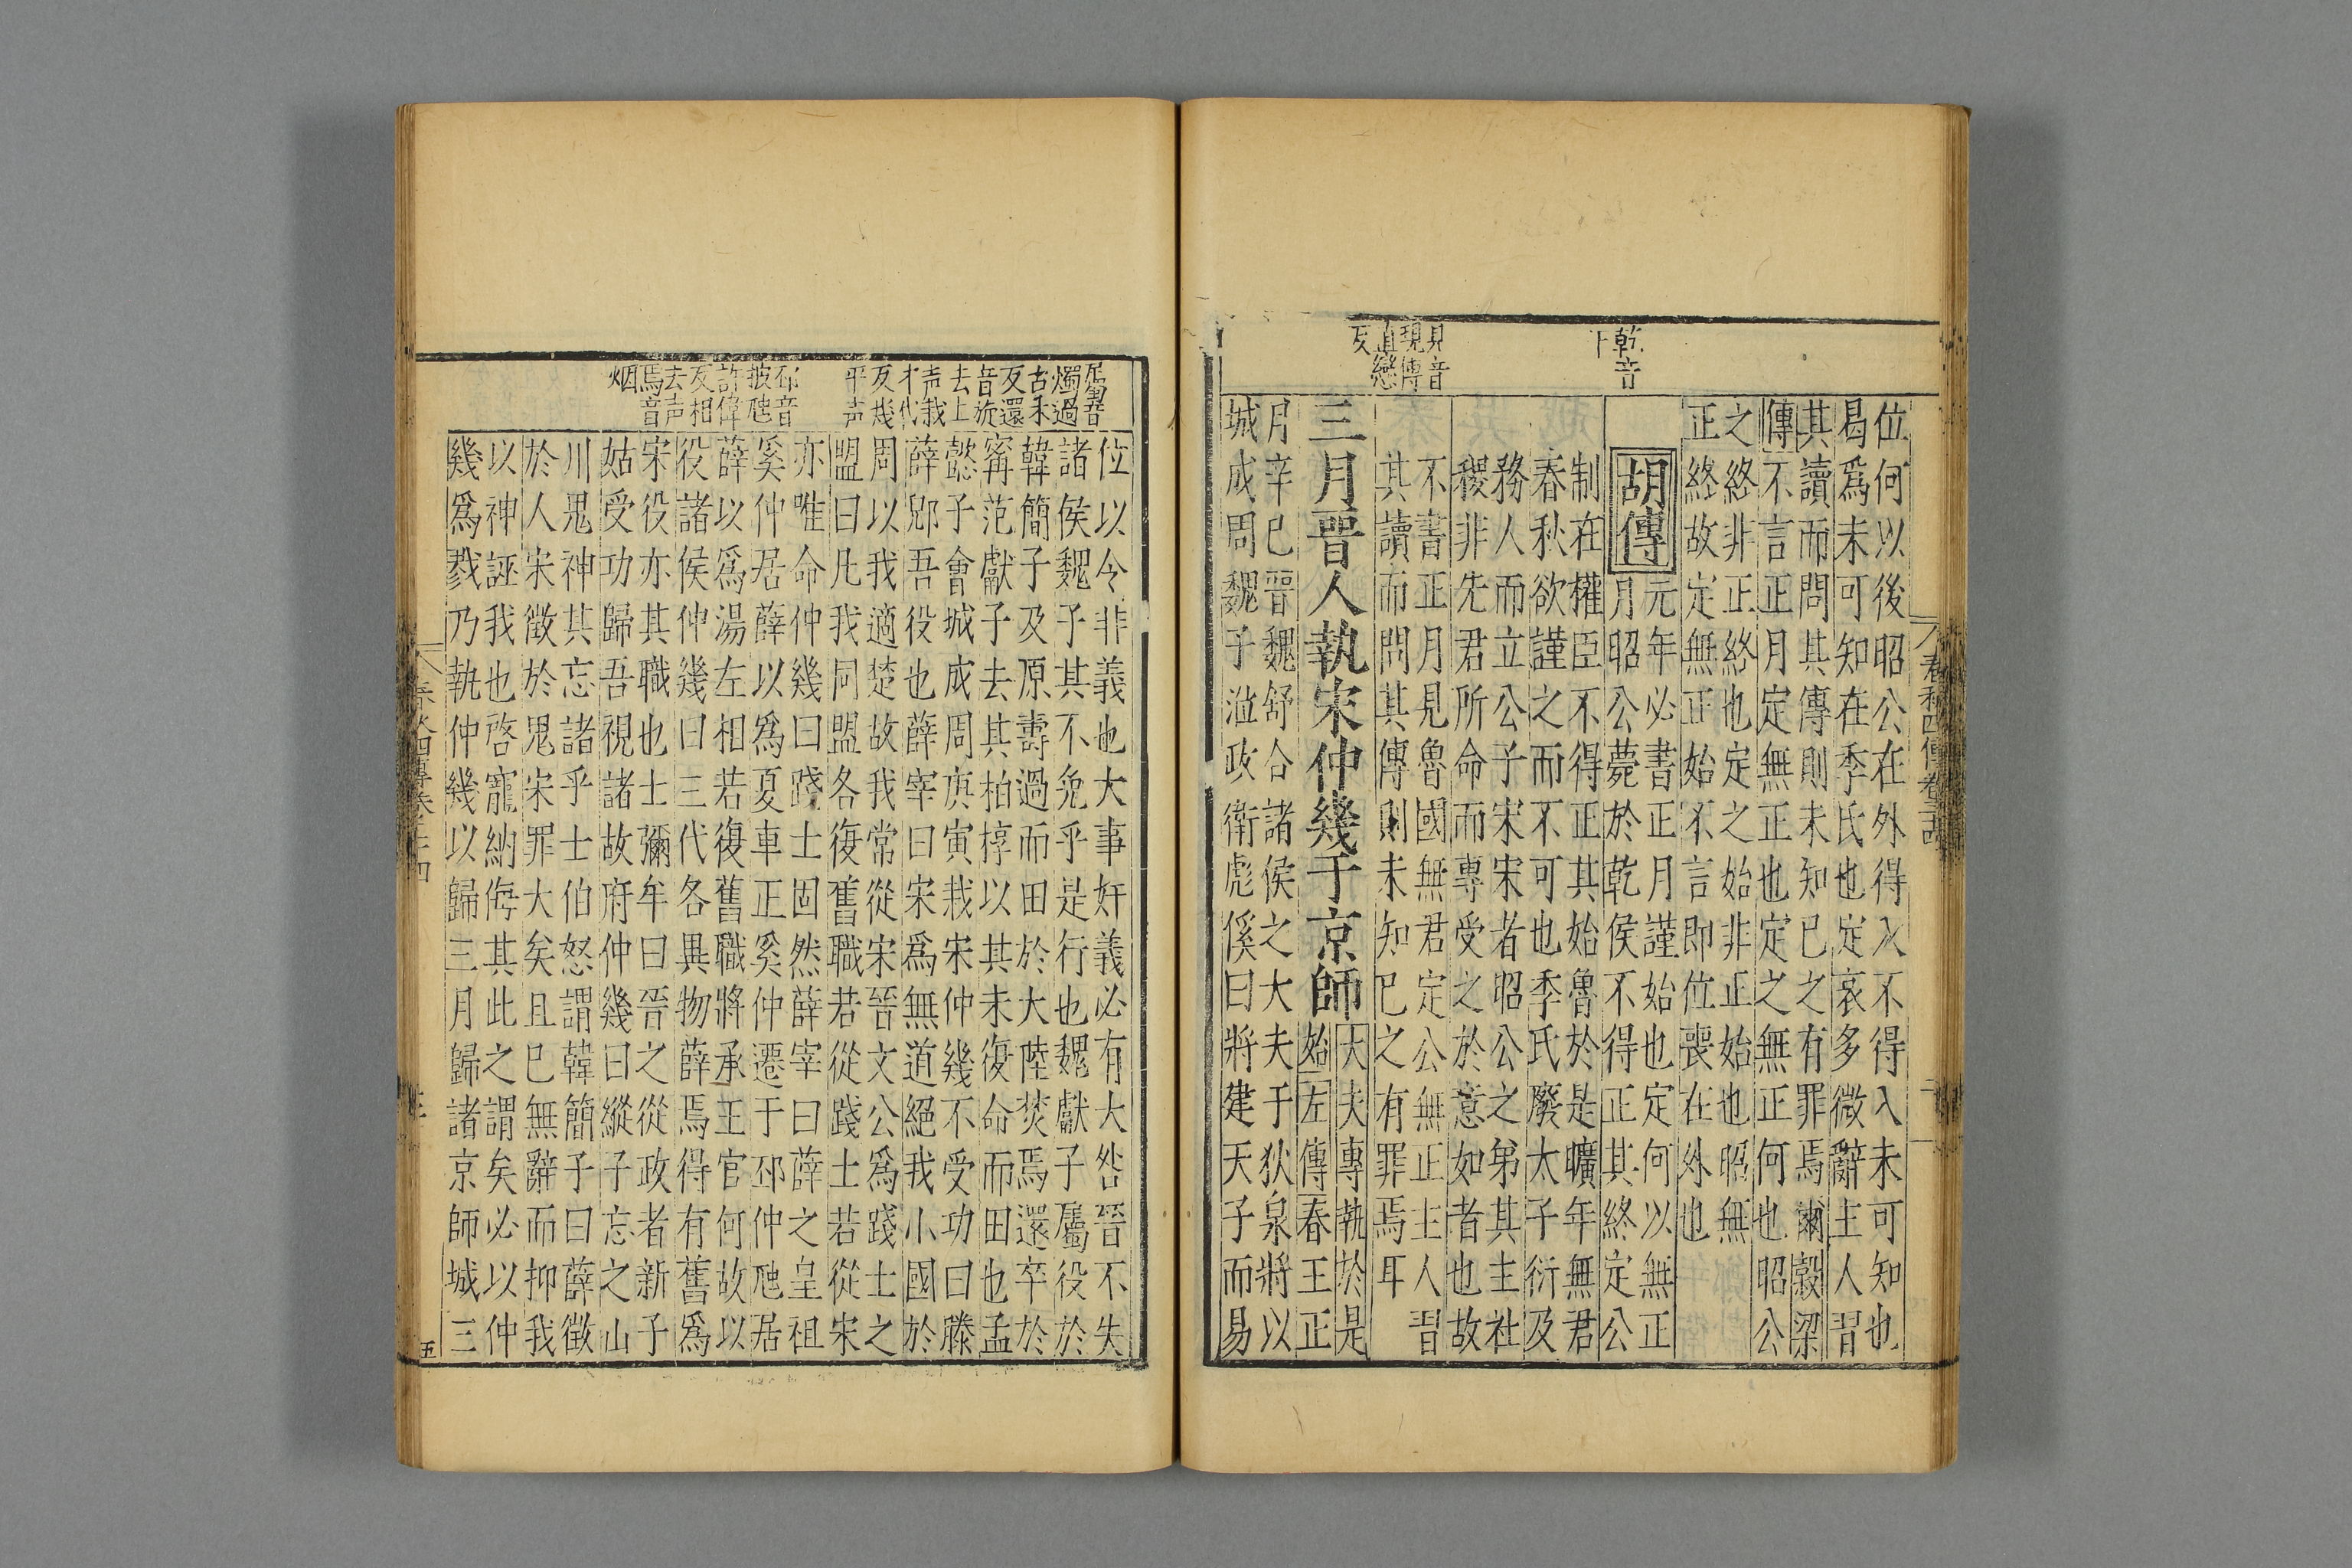 乾音
干
見音
現傳
直戀
反
位何以後昭公在外得入不得入未可知也
曷爲未可知在季氏也定哀多微辭主人習
其讀而問其傳則未知已之有罪焉爾穀梁
傳不言正月定無正也定之無正何也昭公
之終非正終也定之始非正始也昭無
正終故定無正始不言即位喪在外也
胡傳
元年必書正月謹始也定何以無正
月昭公薨於乾侯不得正其終定公
制在權臣不得正其始魯於是曠年無君
春秋欲謹之而不可也季氏廢太子衍及
務人而立公子宋宋者昭公之弟其主社
稷非先君所命而專受之於意如者也故
不書正月見魯國無君定公無正主人習
其讀而問其傳則未知已之有罪焉耳
三月晋人執宋仲幾于京師
大夫專執於是
始左傳春王正
月辛巳晉魏舒合諸侯之大夫于狄泉將以
城成周魏子涖政衛彪傒曰將建天子而易
屬音
燭過
古禾
反還
音旋
去上
声栽
才代
反幾
平声
邳音
披虺
許偉
反相
去声
焉音
烟
位以令非義也大事奸義必有大咎晉不失
諸侯魏子其不免乎是行也魏獻子屬役於
韓簡子及原壽過而田於大陸焚焉還卒於
甯范獻子去其柏椁以其未復命而田也孟
懿子會城成周庚寅栽宋仲幾不受功曰滕
薛郳吾役也薛宰曰宋爲無道絕我小國於
周以我適楚故我常從宋晉文公爲踐土之
盟曰凡我同盟各復舊職若從踐土若從宋
亦唯命仲幾曰踐土固然薛宰曰薛之皇祖
奚仲居薛以爲夏車正奚仲遷于邳仲虺居
薛以爲湯左相若復舊職將承王官何故以
役諸侯仲幾曰三代各異物薛焉得有舊爲
宋役亦其職也士彌牟曰晉之從政者新子
姑受功歸吾視諸故府仲幾曰縱子忘之山
川鬼神其忘諸乎士伯怒謂韓簡子曰薛徵
於人宋徵於鬼宋罪大矣且已無辭而抑我
以神誣我也啓寵納侮其此之謂矣必以仲
幾爲戮乃執仲幾以歸三月歸諸京師城三
五